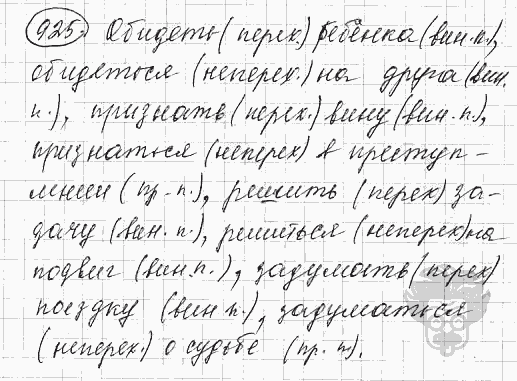 925. Обидеть (перех.) ребёнка (вин.п.),
обидеться (неперех.) на друга (вин.
п.), признать (перех.) вину (вин.п.),
признаться (неперех) в преступ-
лении (пр.п.), решить (перех) за-
дачу (вин.п.), решиться (неперех) на
подвиг (вин.п.), задумать (перех)
поездку (вин п.), задуматься
(неперех.) о судьбе (пр. п.).